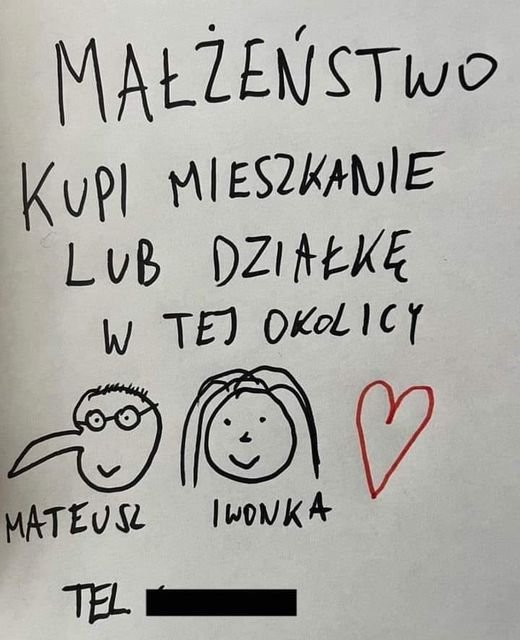 MAŁŻEŃSTWO
KUPI MIESZKANIE
LUB DZIAŁKĘ
W TEJ OKOLICY
MATEUSZ IWONKA
TEL